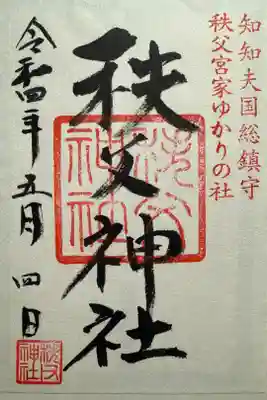 知知夫国総鎮守
秩父宮家ゆかりの社
秩父神社
令和四年 五月 四日
秩父神社
秩父神社